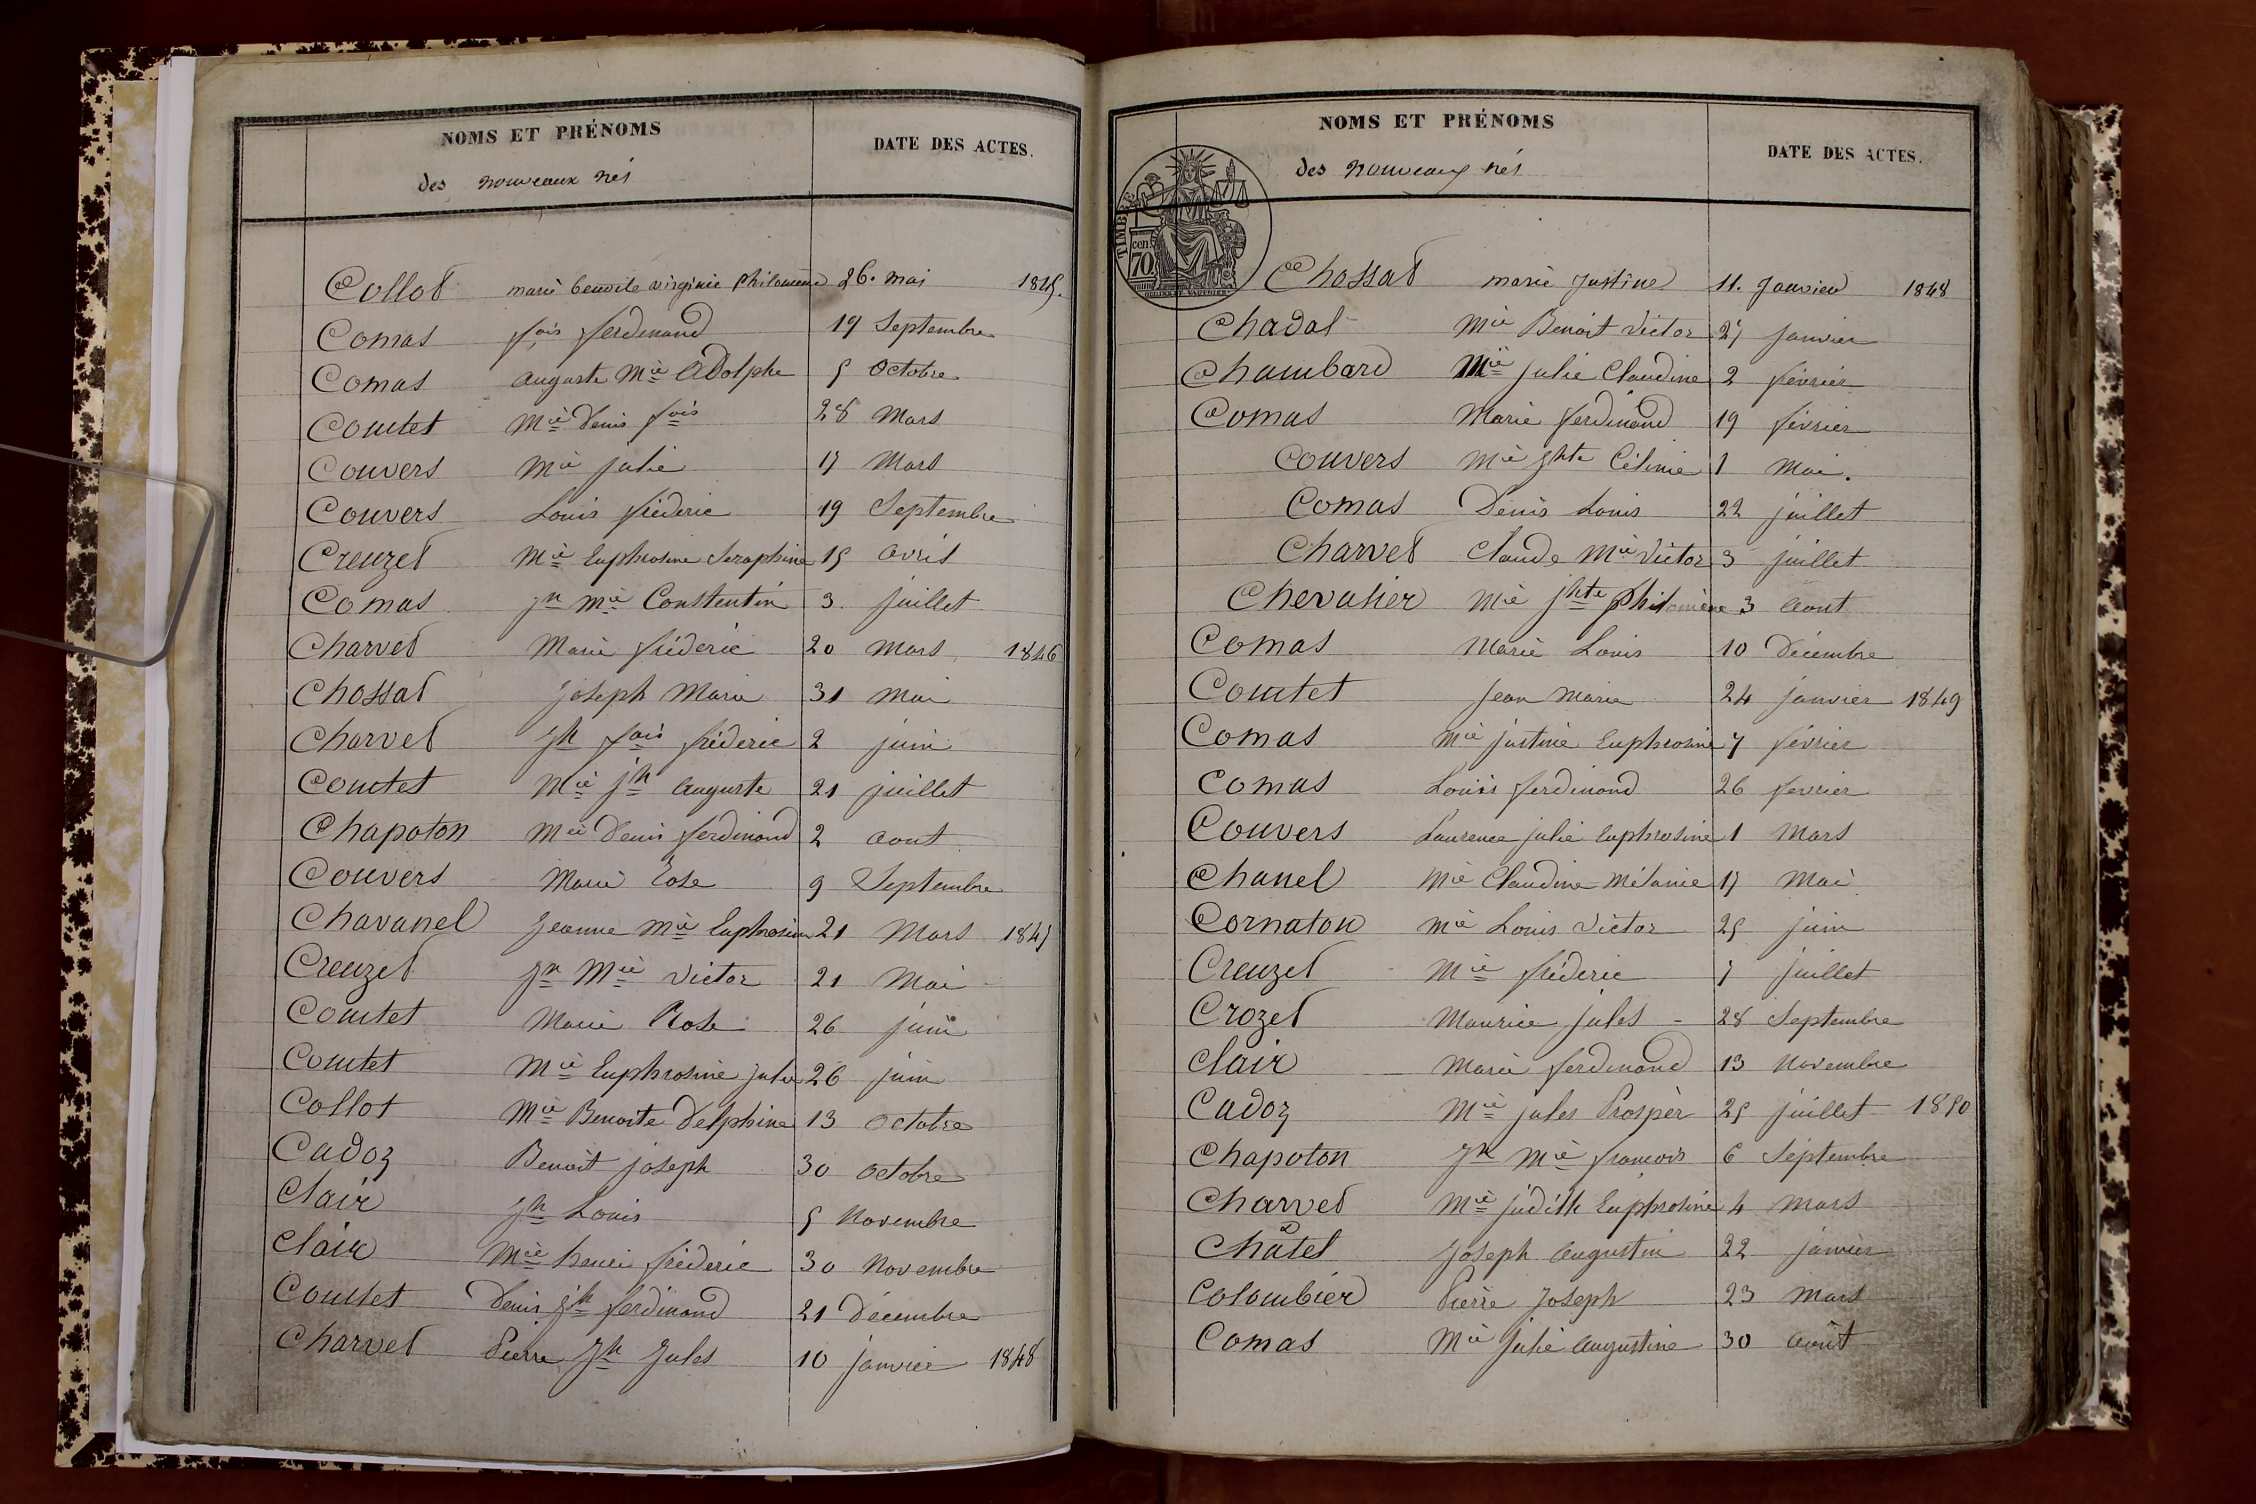 NOMS ET PRÉNOMS DATE DES ACTES.
des nouveaux nés
Collot marie benoite virginie Philomène 26. mai 1845.
Comas fois ferdinand 19 Septembre
Comas auguste Mie Adolphe 5 Octobre
Comtet Mie Denis fois 28 Mars
Couvers Mie julie 17 Mars
Couvers Louis fréderic 19 Septembre
Creuzet Mie Euphrosine Seraphine 15 avril
Comas jn Mie Constentin 3 juillet
Charvet Marie fréderic 20 Mars 1846
Chossat Joseph Marie 31 Mai
Charvet Jh fois fréderic 2 juin
Comtet Mie jh auguste 21 juillet
Chapoton Mie Denis ferdinand 2 aout
Couvers Marie Rose 9 Septembre
Chavanel Jeanne Mie Euphrosine 21 Mars 1847
Creuzet jn Mie Victor 21 Mai
Comtet Marie Rose 26 juin
Comtet Mie Euphrosine Julie 26 juin
Collot Mie Benoite Delphine 13 Octobre
Cadoz Benoit joseph 30 Octobre
Clair jh Louis 5 Novembre
Clair Mie henri fréderic 30 Novembre
Comtet Denis jh ferdinand 21 Décembre
Charvet Pierre Jh Jules 10 janvier 1848
NOMS ET PRÉNOMS DATE DES ACTES.
des nouveaux nés
TIMBRE
cen.
70
Chossat marie Justine 11. Janvier 1848
Chadal Mie Benoit Victor 27 janvier
Chambard Mie Julie Claudine 2 février
Comas Marie ferdinand 19 février
Couvers Mie jhte Céline 1 Mai.
Comas Denis Louis 22 juillet
Charvet Claude Mie Victor 3 juillet
Chevalier Mie jhte Philomène 3 Aout
Comas Marie Louis 10 Décembre
Comtet Jean Marie 24 janvier 1849
Comas Mie justine Euphrosine 7 février
Comas Louis ferdinand 26 fevrier
Couvers Laurence julie Euphrosine 1 Mars
Chanel Mie Claudine Mélanie 17 Mai
Cornaton Mie Louis Victor 25 juin
Creuzet Mie fréderic 7 juillet
Crozet Maurice Jules - 28 Septembre
Clair Marie ferdinand 13 Novembre
Cadoz Mie jules Prospèr 25 juillet 1850
Chapoton Jh Mie francois 6 Septembre
Charvet Mie judith Euphrosine 4 Mars
Châtel Joseph Augustin 22 janvier
Colombier Pierre Joseph 23 Mars
Comas Mie Julie Augustine 30 Août